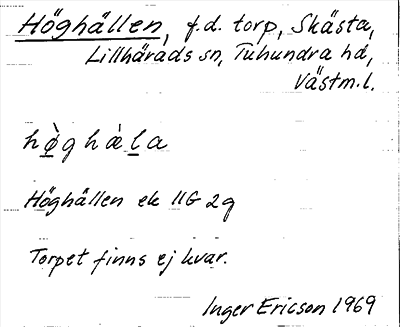 Höghällen, f.d. torp, Skästa,
Lillhärads sn, Tuhundra hd,
Västm.l.
hø̀ghæ̀la
Höghällen ek 11G 2g
Torpet finns ej kvar.
Inger Ericson 1969